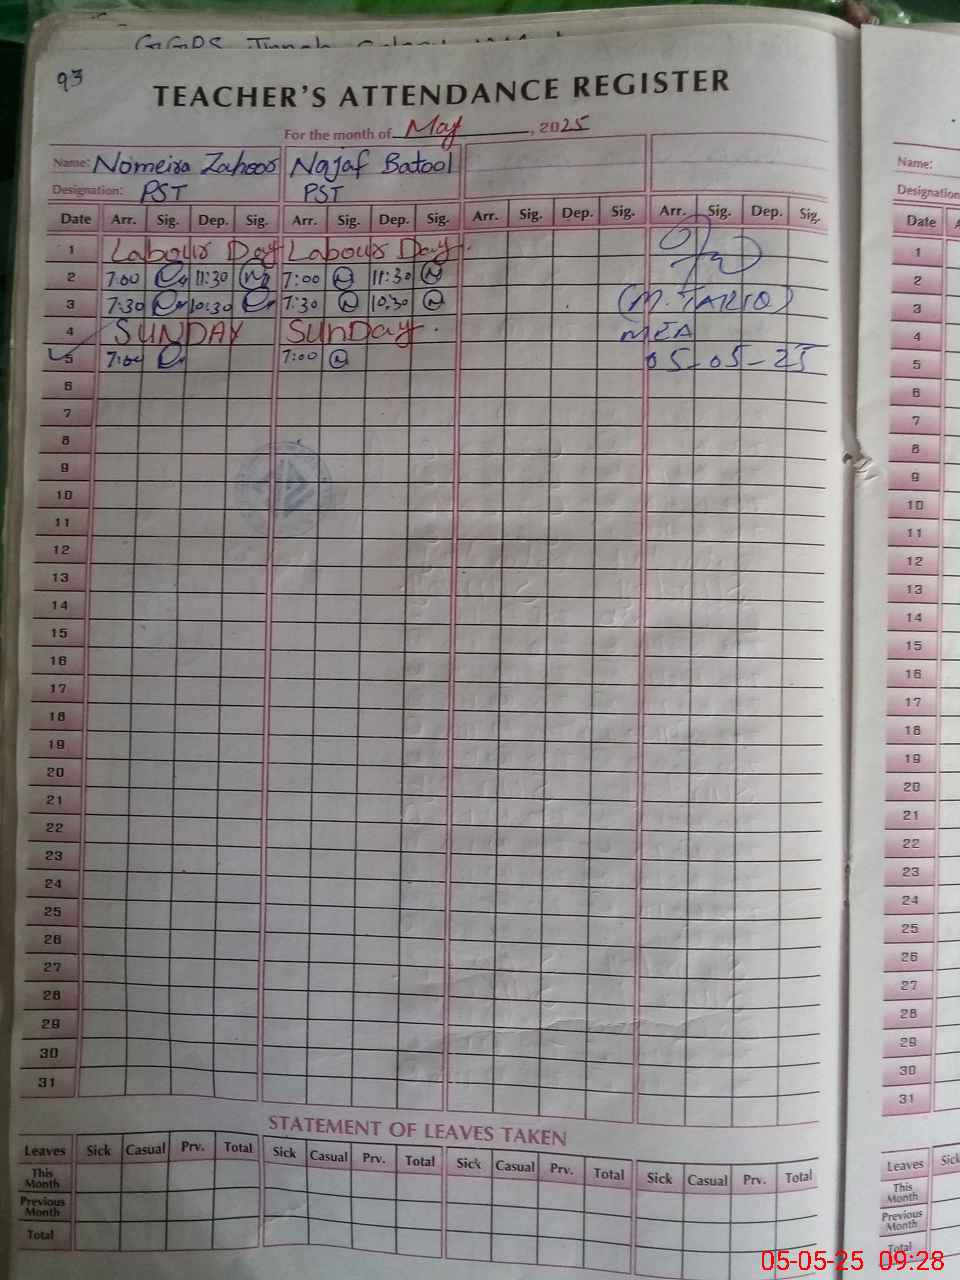 93
TEACHER'S ATTENDANCE REGISTER
For the month of May, 2025
Name: Nomeira Zahoor Najaf Batool
Designation: PST PST
Date Arr. Sig. Dep. Sig. Arr. Sig. Dep. Sig. Arr. Sig. Dep. Sig. Arr. Sig. Dep. Sig.
1 Labour Day Labour Day.
2 7:00 11:30 7:00 11:30
3 7:30 10:30 7:30 10:30 (M. TARIQ)
4 SUNDAY SUNDay. MEA
5 7:00 7:00 05-05-25
6
7
8
9
10
11
12
13
14
15
16
17
18
19
20
21
22
23
24
25
26
27
28
29
30
31
STATEMENT OF LEAVES TAKEN
Leaves Sick Casual Prv. Total Sick Casual Prv. Total Sick Casual Prv. Total Sick Casual Prv. Total
This Month
Previous Month
Total
Name:
Designation
Date
1
2
3
4
5
6
7
8
9
10
11
12
13
14
15
16
17
18
19
20
21
22
23
24
25
26
27
28
29
30
31
Leaves Sick
This Month
Previous Month
Total
05-05-25 09:28